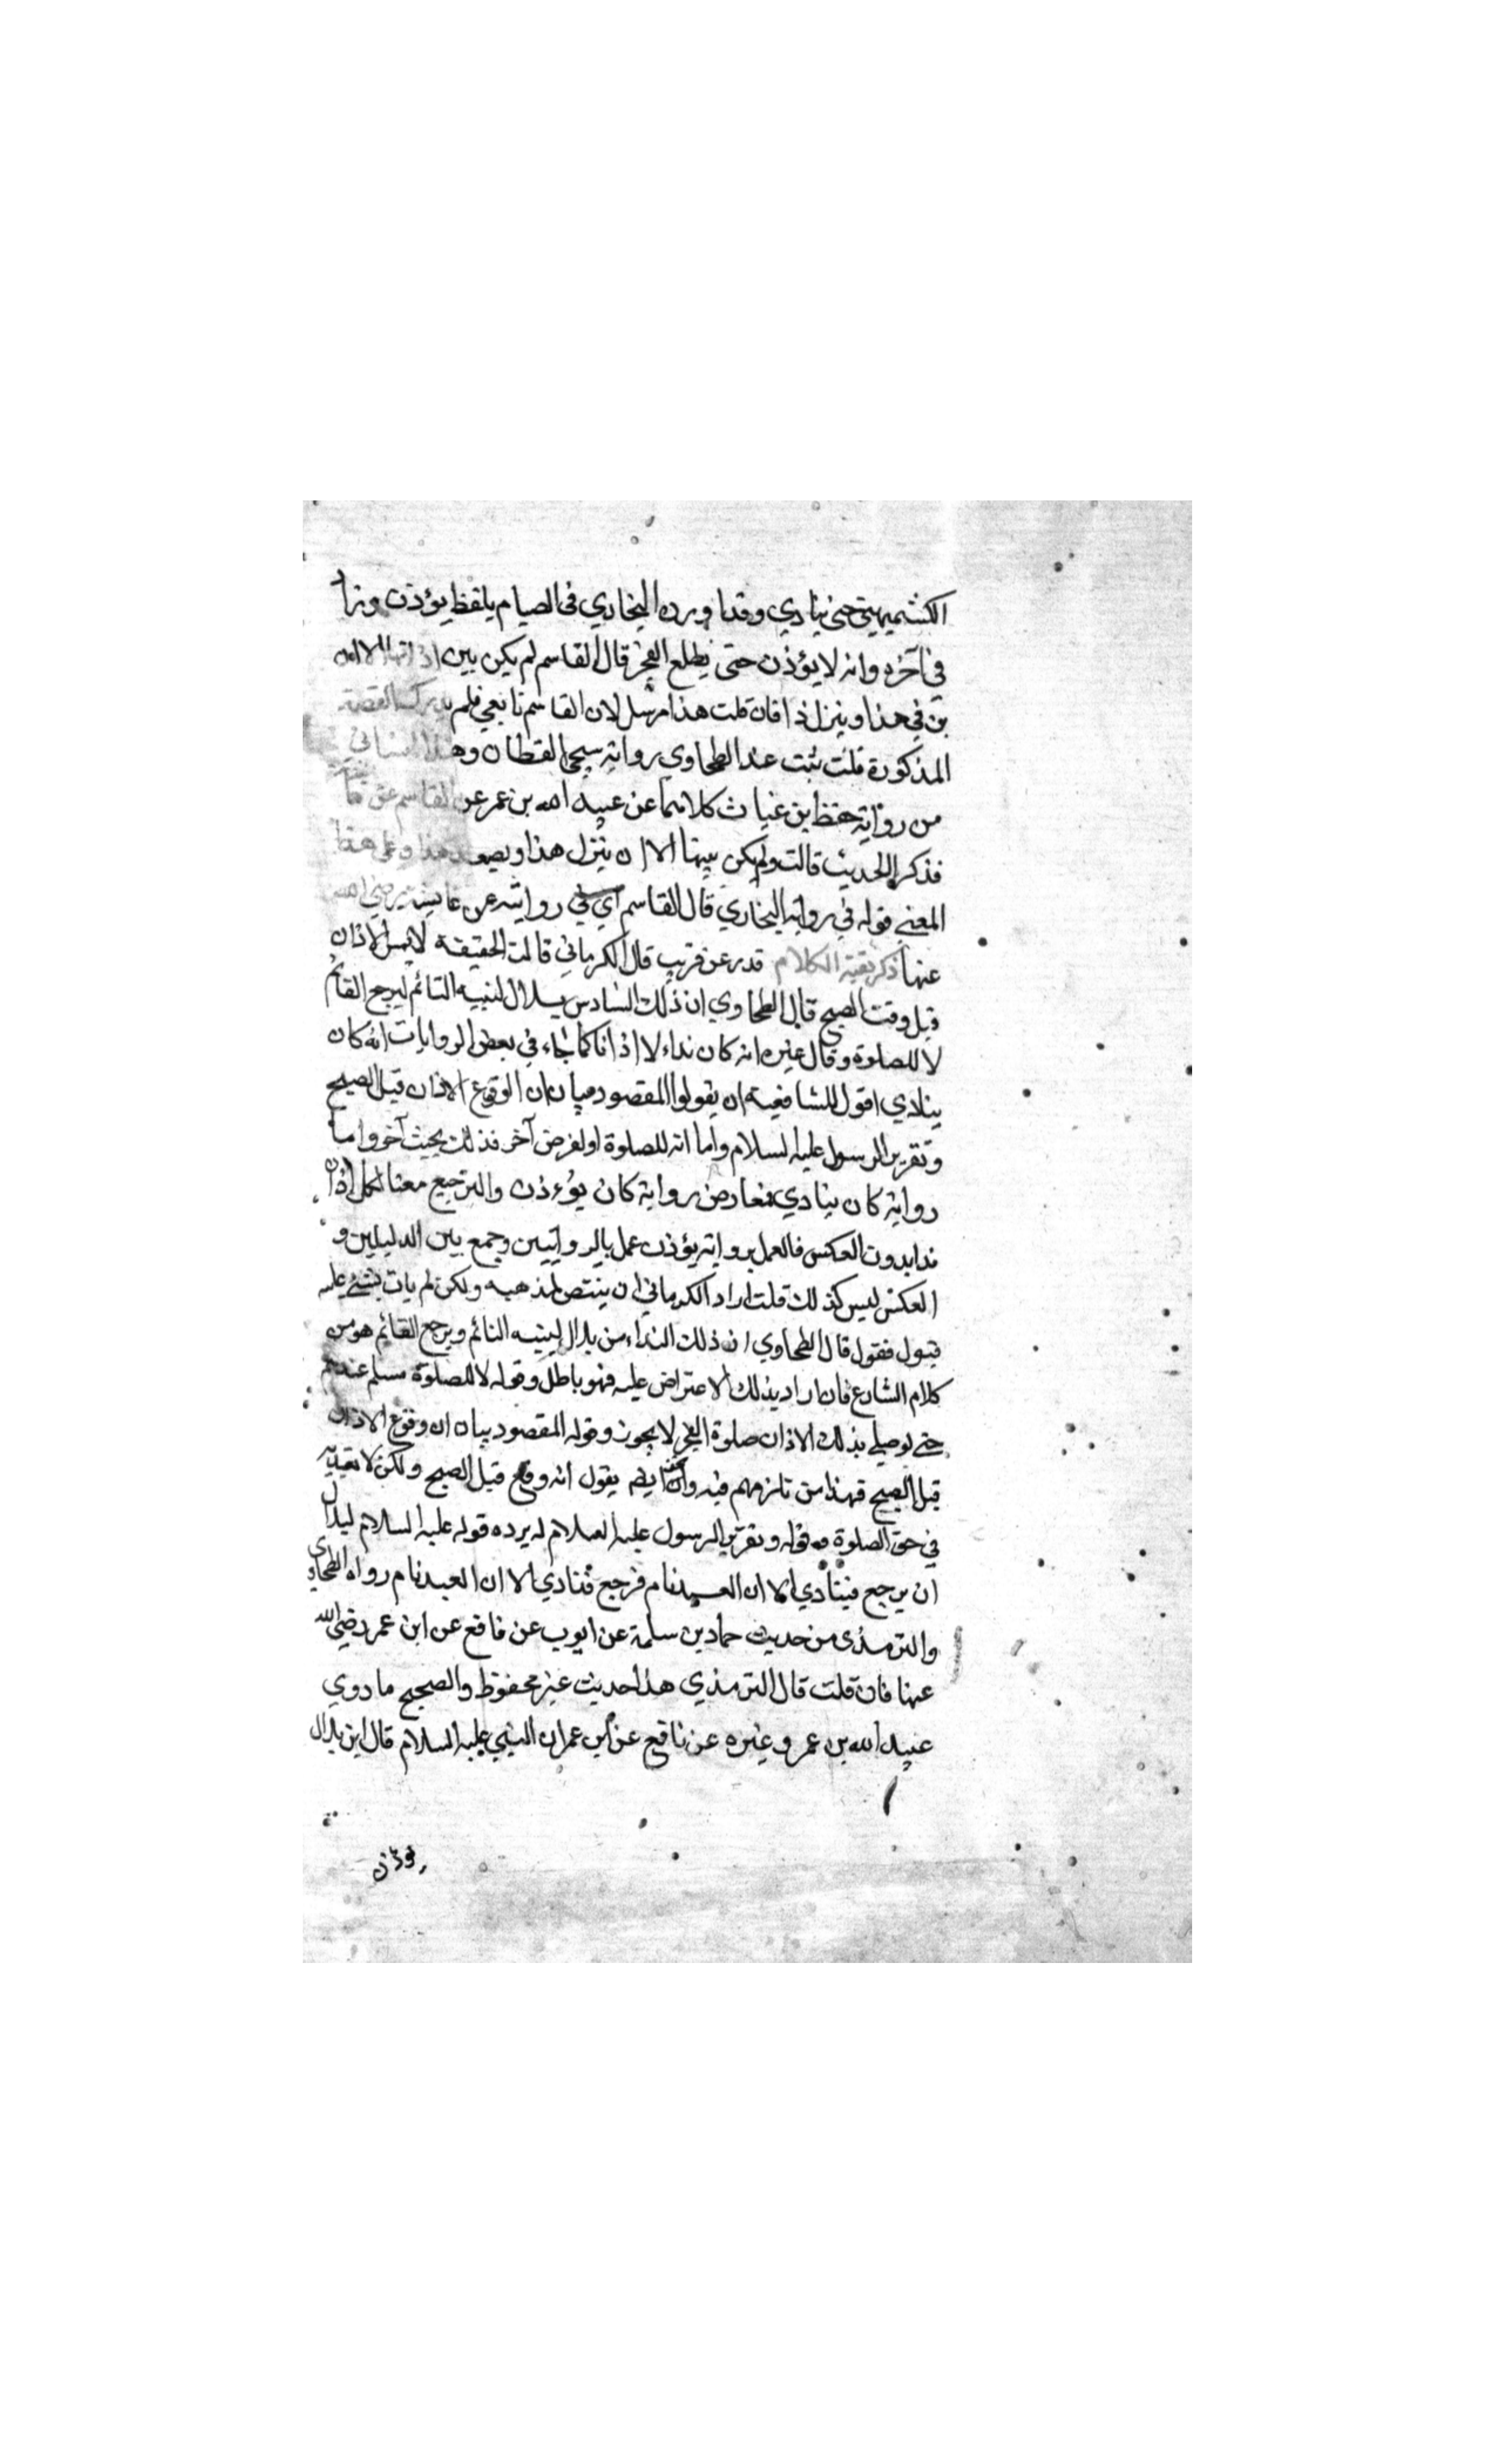 الكشميهيني حتى ينادي وقد اورده البخاري في الصيام بلفظ يؤذن وزاد
في آخره وانه لا يؤذن حتى يطلع الفجر قال القاسم لم يكن بين اذانهما الا ان
يرقي هذا وينزل ذا فان قلت هذا مرسل لان القاسم تابعي فلم يدرك القصة
المذكورة قلت ثبت عند الطحاوي رواية يحيى القطان وهذا النسائي
من رواية حفظ بن غياث كلاهما عن عبيد الله بن عمر عن القاسم عن
فذكر الحديث قالت ولم يكن بينهما الا ان ينزل هذا ويصعد هذا وعلى هذا
المعنى قوله في رواية البخاري قال القاسم اي في روايته عن عايشة رضي الله
عنها ذكر بقية الكلام قد مر عن قريب قال الكرماني قالت الحقيقة لا يسن الاذان
قبل وقت الصبح قال الطحاوي ان ذلك النداء من بلال لينبه النائم ليرجع القائم
لا للصلوة وقال غيره انه كان نداء لا اذانا كما جاء في بعض الروايات انه كان
ينادي اقول للشافعية ان يقولوا المقصود بيان ان الوقوع الاذان قبل الصبح
وتقرير الرسول عليه السلام واما انه للصلوة او لغرض آخر فذلك بحيث آخر واما
رواية كان ينادي فمعارض برواية كان يؤذن والترجيح معنا لكل اذان
ندا بدون العكس فالعمل برواية يؤذن عمل بالروايتين وجمع بين الدليلين و
العكس ليس كذلك قلت اراد الكرماني ان ينتصر لمذهبه ولكن لم يات بشئ عليه
قبول فنقول قال الطحاوي ان ذلك النداء من بلال لينبه النائم ويرجع القائم هو من
كلام الشارع فان اراد بذلك الاعتراض عليه فهو باطل وقوله لا للصلوة مسلم عندهم
حتى لو صلي بذلك الاذان صلوة الفجر لا يجوز وقوله المقصود بيان ان وقوع الاذان
قبل الصبح فهذا من نازعهم فيه ايضا يقول انه وقع قبل الصبح ولكن لا يعتد به
في حق الصلوة وقوله وتقرير الرسول عليه السلام له يرده قوله عليه السلام لبلال
ان يرجع فينادي الا ان العبد نام فرجع فنادي الا ان العبد نام رواه الطحاوي
والترمذى من حديث حماد بن سلمة عن ايوب عن نافع عن ابن عمر رضي الله
عنهما فان قلت قال الترمذي هذا حديث غير محفوظ والصحيح ما روي
عبيد الله بن عمر وغيره عن نافع عن ابن عمر ان النبي عليه السلام قال ان بلال
يوذن